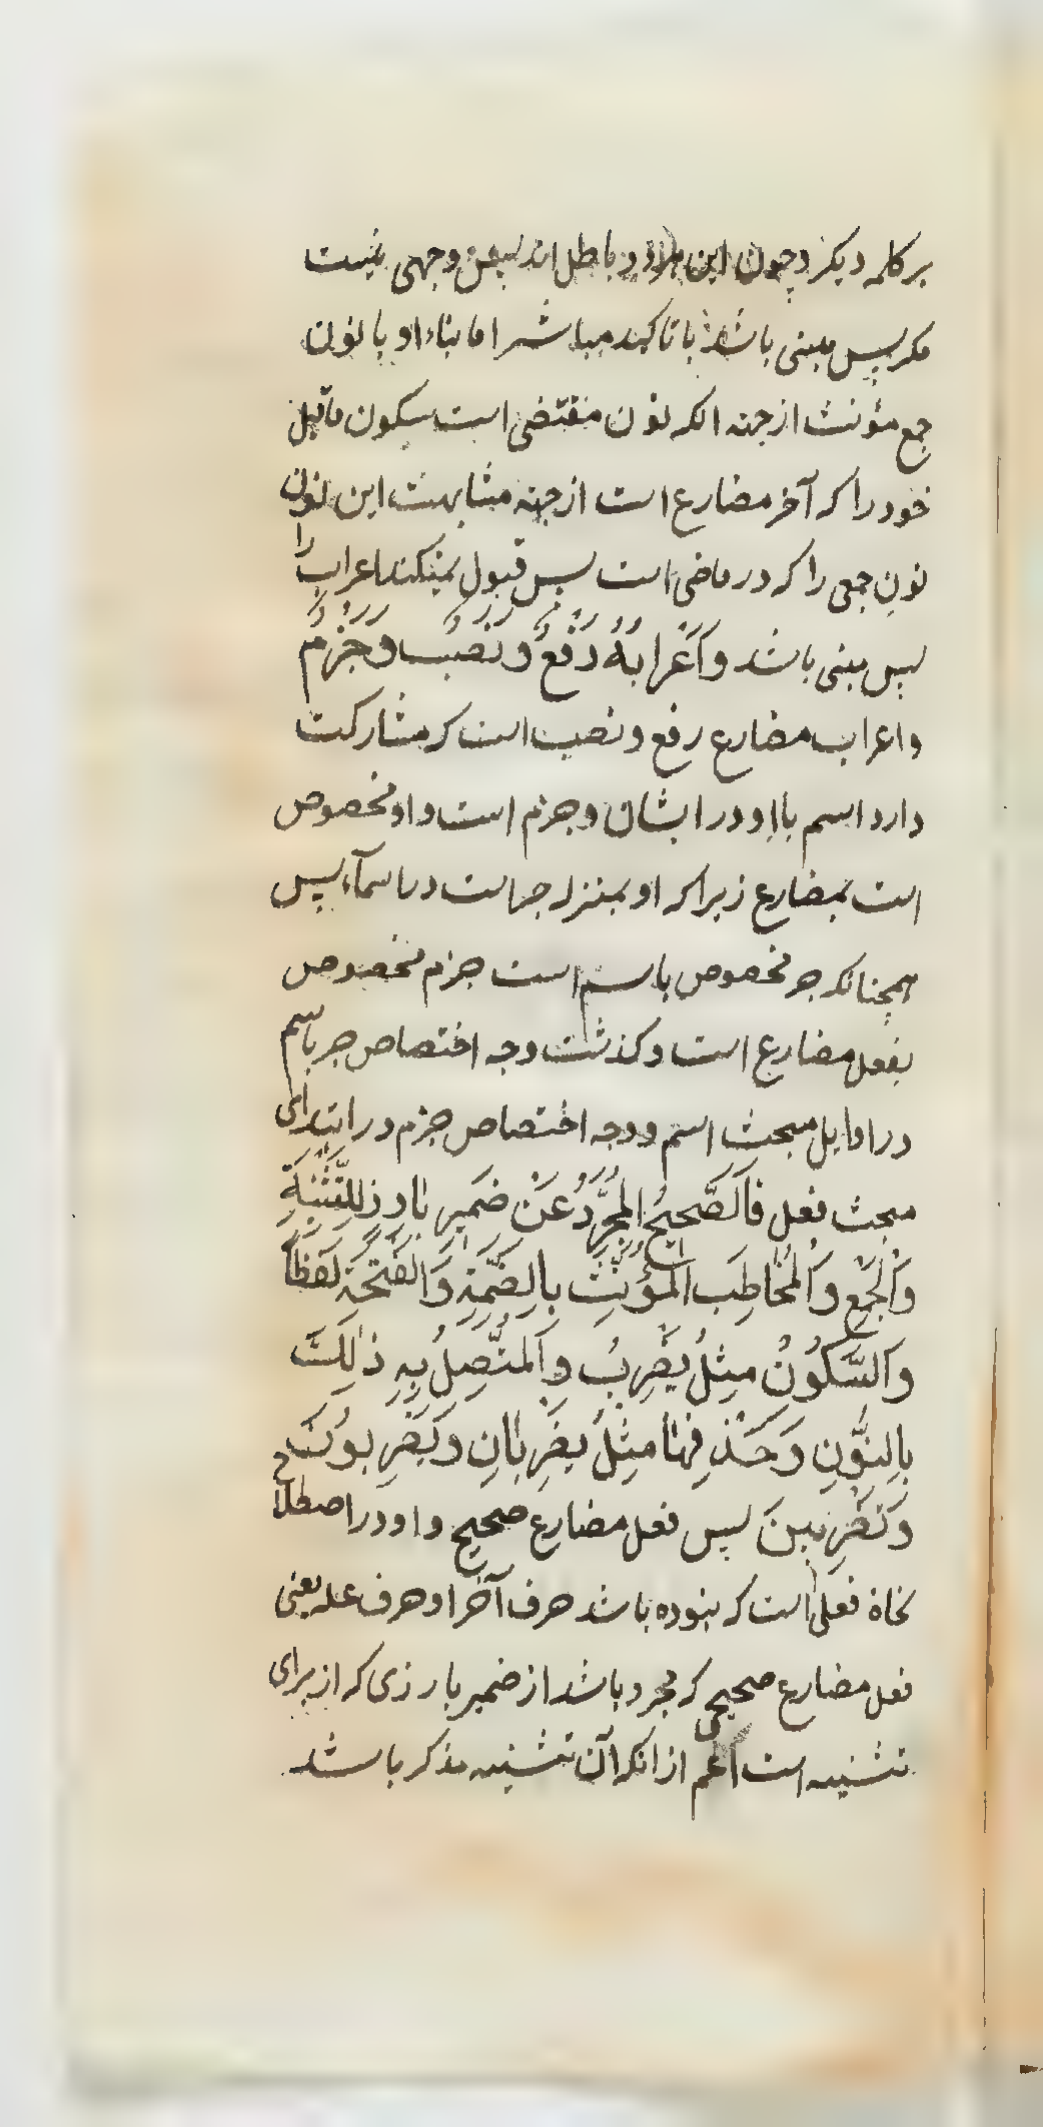 بر کلمه دیکر و چون این هر دو باطل اند وجهی نیست
مکر پس مبنی باشد با تاکید مباشر اما بناء او با نون
جمع مؤنث از جهة انکه نون مقتضی است سکون ماقبل
خود را که آخر مضارع است از جهة مشابهت این نون
نون جمعی را که در ماضی است پس قبول نمیکند اعراب را
پس مبنی باشد وَاِعْرَابُهُ رَفْعٌ وَنَصْبٌ وَجَزْمٌ
و اعراب مضارع رفع و نصب است که مشارکت
دارد اسم با او در ایشان و جزم است و او مخصوص
است بمضارع زیرا که او بمنزله جر است در اسمآء پس
همچنانکه جر مخصوص باسم است جزم مخصوص
بفعل مضارع است و کذشت وجه اختصاص جر باسم
در اوایل مبحث اسم و وجه اختصاص جزم در ابتدای
مبحث فعل فَالصَّحِيحُ الْمُجَرَّدُ عَنْ ضَمِيرٍ بَارِزٍ لِلتَّثْنِيَةِ
وَالْجَمْعِ وَالْمُخَاطَبِ الْمُؤَنَّثِ بِالضَّمَّةِ وَالْفَتْحَةِ لَفْظًا
وَالسُّكُونِ مِثْلُ يَضْرِبُ وَالْمُتَّصِلُ بِهِ ذٰلِكَ
بِالنُّونِ وَحَذْفِهَا مِثْلُ يَضْرِبَانِ وَيَضْرِبُونَ
وَتَضْرِبِينَ پس فعل مضارع صحیح و او در اصطلاح
نحاة فعلی است که نبوده باشد حرف آخر او حرف عله یعنی
فعل مضارع صحیحی که مجرد باشد از ضمیر بارزی که از برای
تثنیه است اعم از انکه آن تثنیه مذکر باشد